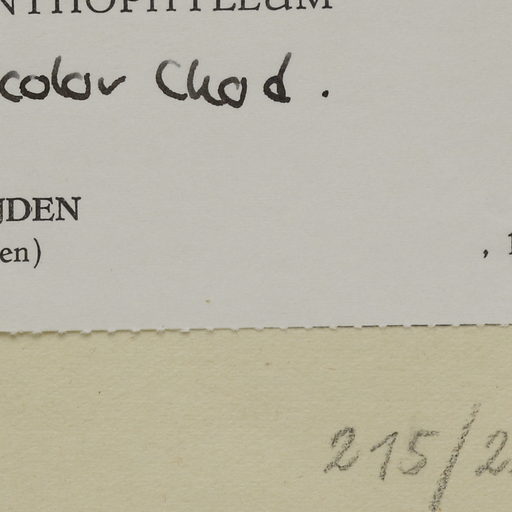 NTHOPHYLLUM
color Chod.
JDEN
en)
, 1
215/2